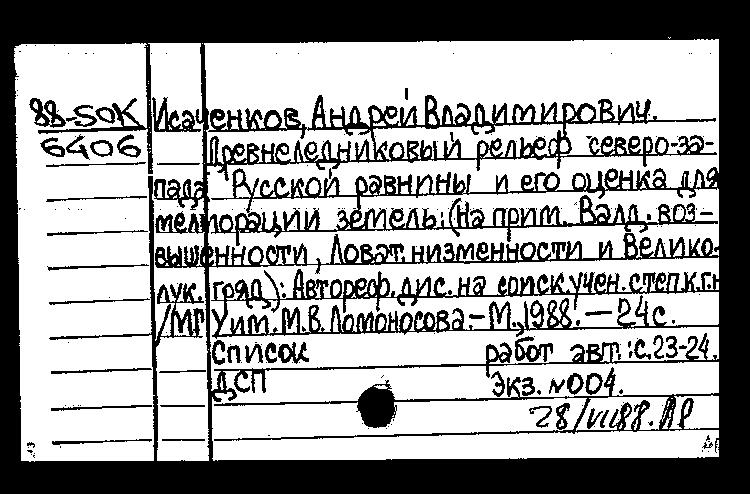 88-50К Исаченков, Андрей Владимирович.
6406 Древнеледниковый рельеф северо-за-
пада Русской равнины и его оценка для
мелиорации земель: (На прим. Валд. воз-
вышенности, Ловат. низменности и Велико-
лук. гряд): Автореф. дис. на соиск. учен. степ. к.г.н
/МГУ им. М.В. Ломоносова.-М., 1988. — 24с.
Список работ авт.: с.23-24.
ДСП Экз. №004.
28/VII88. АР